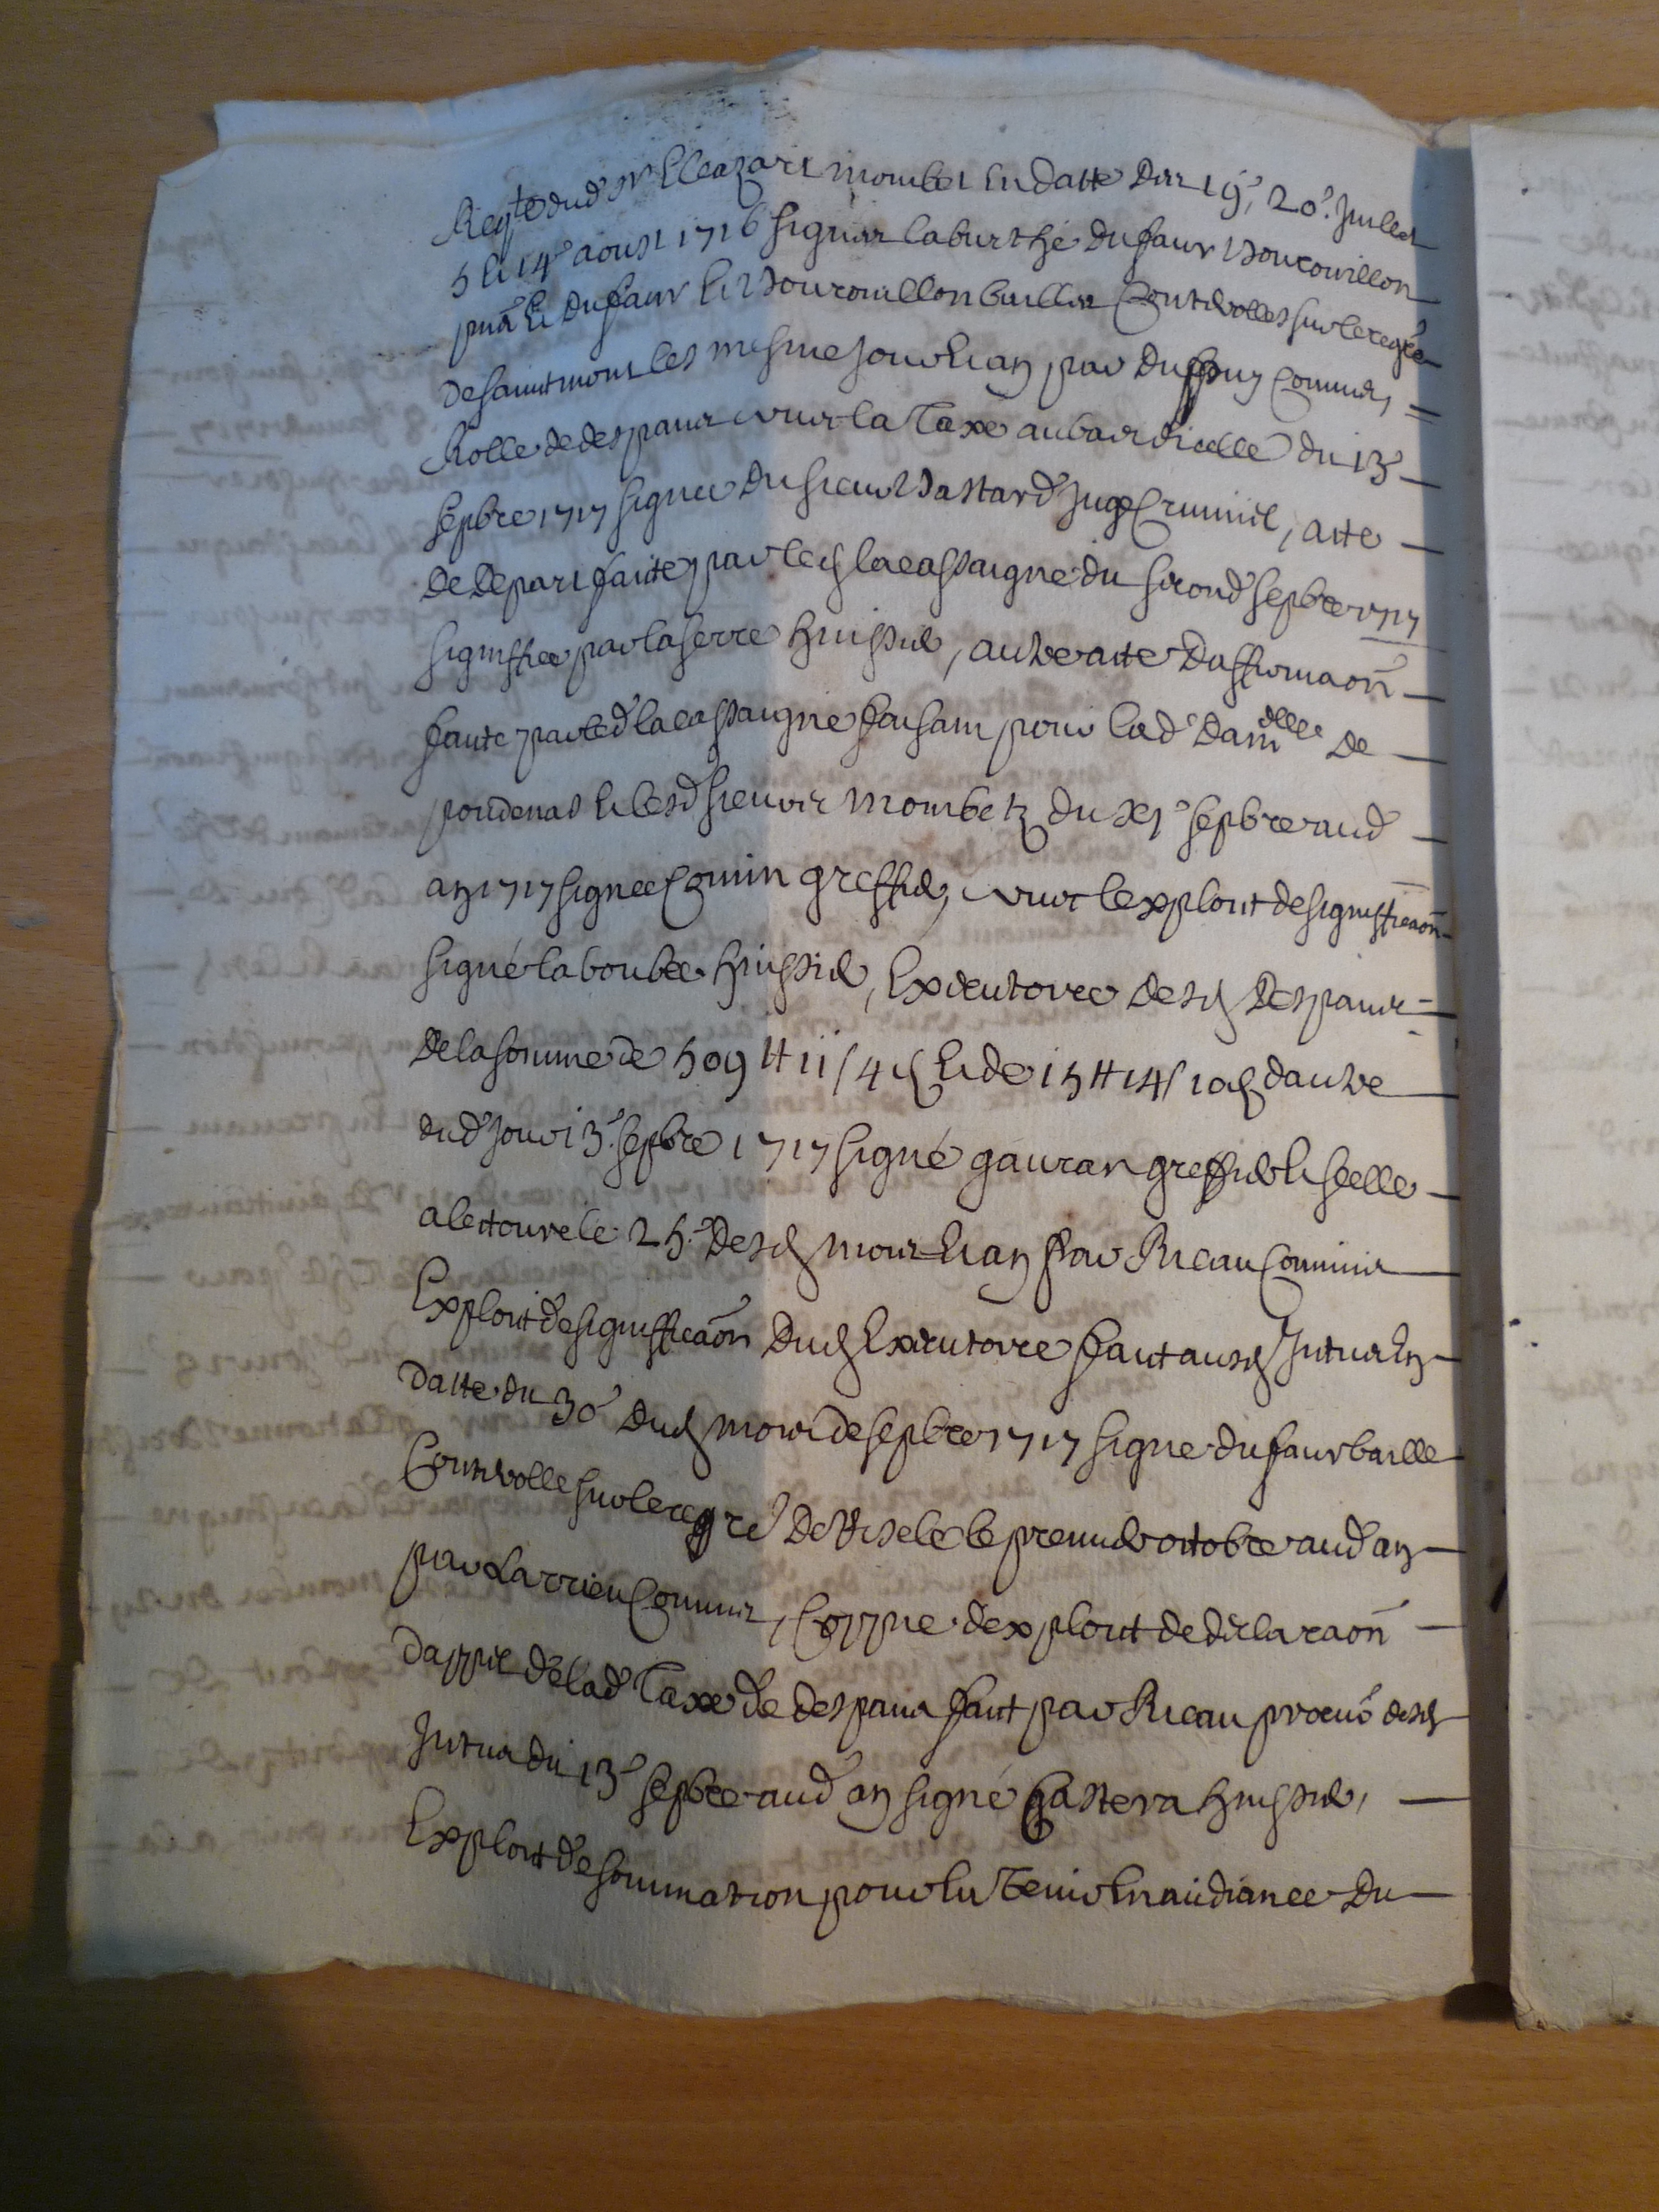 Reqte dud sr Eleazart mombet en datte des 19e, 20e. Juillet
5 et 14e aoust 1716 signés laburthe dufaur Bourouillon
pnã et dufaur et Bourouillon baillés Controlles sur le regre
de saintmont les mesme jour et an par dupouy Commis,
Rolle de despans vuis la Taxe au bas dicelle du 13e
sepbre 1717 signée du sieur Bastard Juge Criminel, atte
de depart faite par led lacassaigne du second sepbre 1717
signiffiee par laserre huissier, autre atte daffirmaõn
faite par led lacassaigne faisant pour lad damelle de
poudenas et lesd sieurs mombetz du XIe sepbre aud
an 1717 signee Comin greffier, vuis lexploit de signifficaõn
signé laboubee huissier, Executoire desd despans
de la somme de 509 ₶ 11 s 4 d et de 15 ₶ 14 s 10 d dautre
dud jour 13e. sepbre 1717 signé gauran greffier et scelle
a lectoure le 25e. desd mois et an par Rieau Commis
Exploit de signifficaõn dud Executoire fait ausd Intiés en
datte du 30e dud mois de sepbre 1717 signe dufaur baille
Controlle sur le regre de Riscle le premier octobre aud an
par Larrieu Commis, Coppie dexploit de declaraõn
dappel de lad Taxe de despans fait par Rieau procur desd
Intiés du 13e sepbre aud an signé Castera huissier,
Exploit de sommation pour en Tenir en audiance du